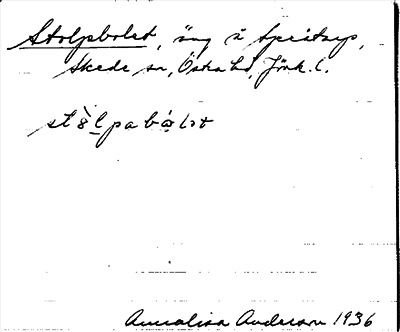 Stolpbolet, äng å Spexarp,
Skede sn, Östra hd, Jönk. l.
stòlpabólət
Annalisa Anderson 1936